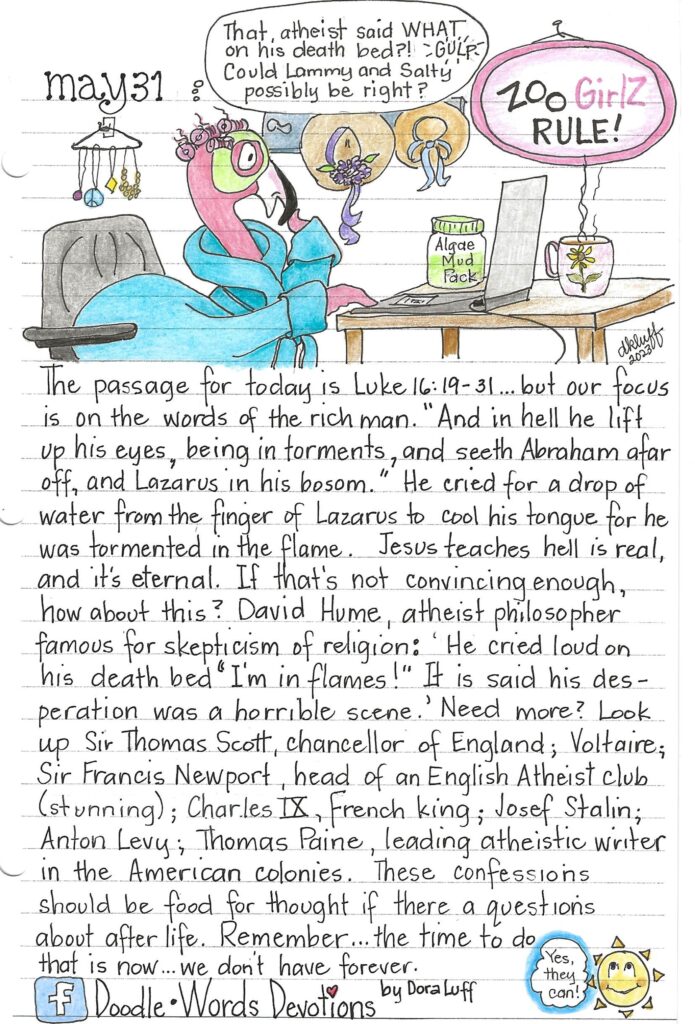 That, atheist said WHAT
on his death bed?! GULP
Could Lammy and Salty
possibly be right?
may 31
ZOO GirlZ
RULE!
Algae
Mud
Pack
dkluff
2023
The passage for today is Luke 16:19-31...but our focus
is on the words of the rich man. "And in hell he lift
up his eyes, being in torments, and seeth Abraham afar
off, and Lazarus in his bosom." He cried for a drop of
water from the finger of Lazarus to cool his tongue for he
was tormented in the flame. Jesus teaches hell is real,
and it's eternal. If that's not convincing enough,
how about this? David Hume, atheist philosopher
famous for skepticism of religion: 'He cried loud on
his death bed "I'm in flames!" It is said his des-
peration was a horrible scene.' Need more? Look
up Sir Thomas Scott, chancellor of England; Voltaire;
Sir Francis Newport, head of an English Atheist club
(stunning); Charles IX, French king; Josef Stalin;
Anton Levy; Thomas Paine, leading atheistic writer
in the American colonies. These confessions
should be food for thought if there a questions
about after life. Remember...the time to do
that is now...we don't have forever.
Yes,
they
can!
f Doodle•Words Devotions by Dora Luff